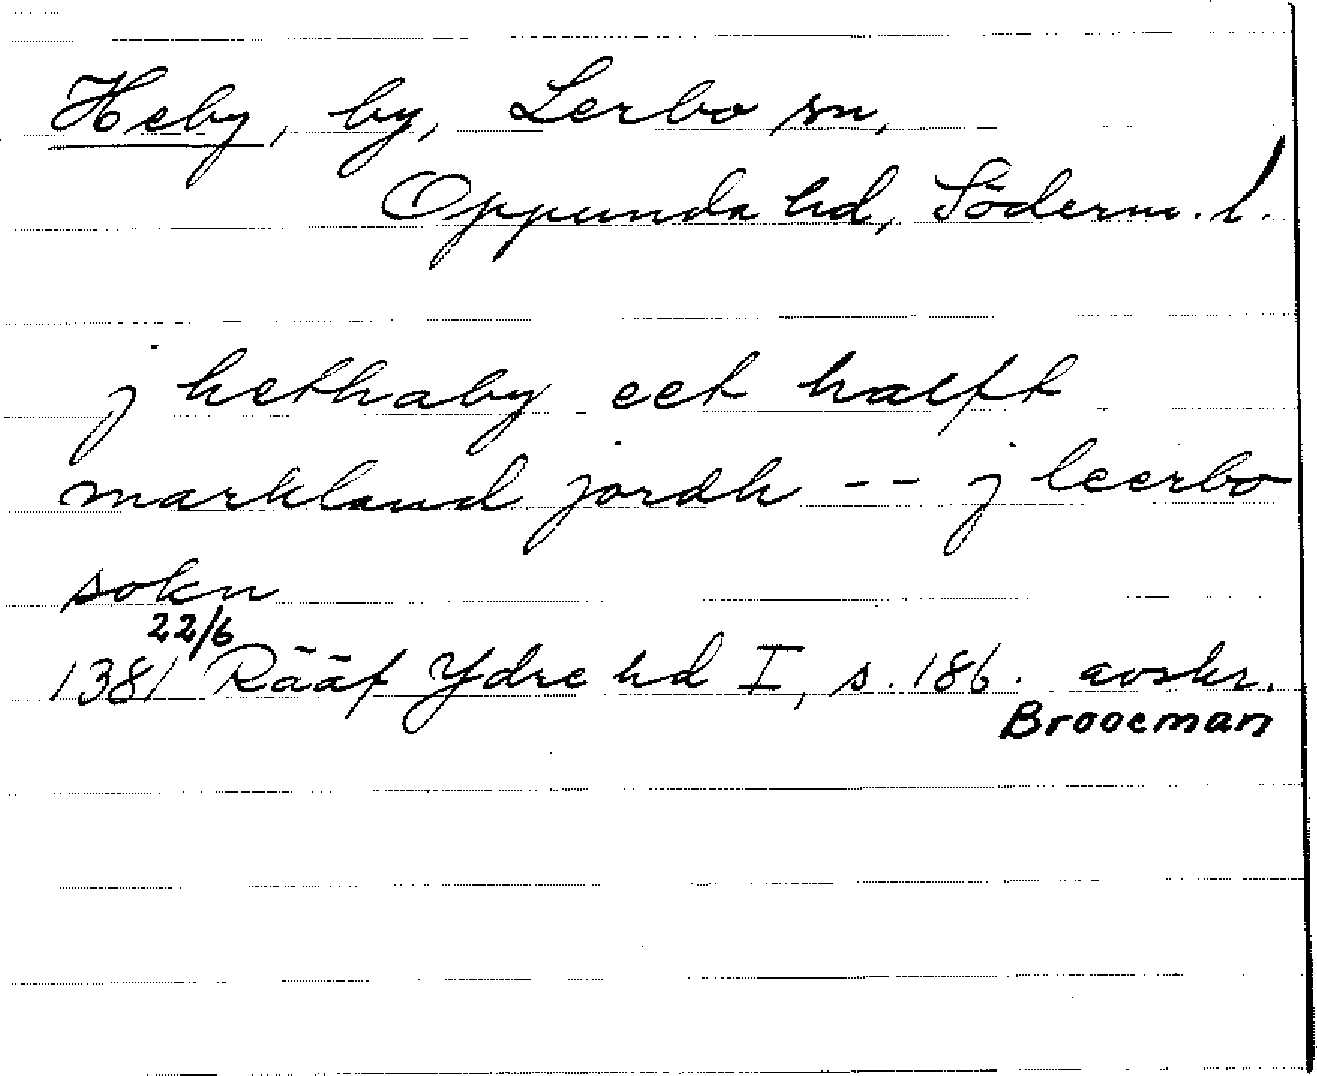 Heby, by, Lerbo sn,
Oppunda hd, Söderm. l.
j hethaby eet halft
markland jordh -- j leerbo
sokn
22/6
1381 Rääf Ydre hd I, s. 186. avskr.
Brooeman